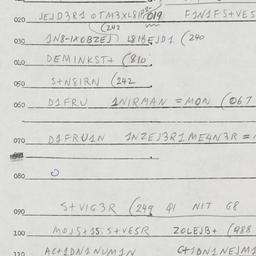 020 JEJD3R1 OTM3XL8 019 F1N1FS+VES
(242
030 1N8-1XOBZEJ) L818EJD1 (240
040 DEMINKST+ (810
050 S+N8IRN (242
060 D1FRU 1NIRMAN =MON (067
070 D1FRU1N 1NZEJ3R1ME4N3R =
080
090 S+VIG3R (249 QI NIT G8
100 MOJS+15. S+VESR ZOLEJB+ (988
110 AC+1DN1NUM1N C+1DN1NEJM1